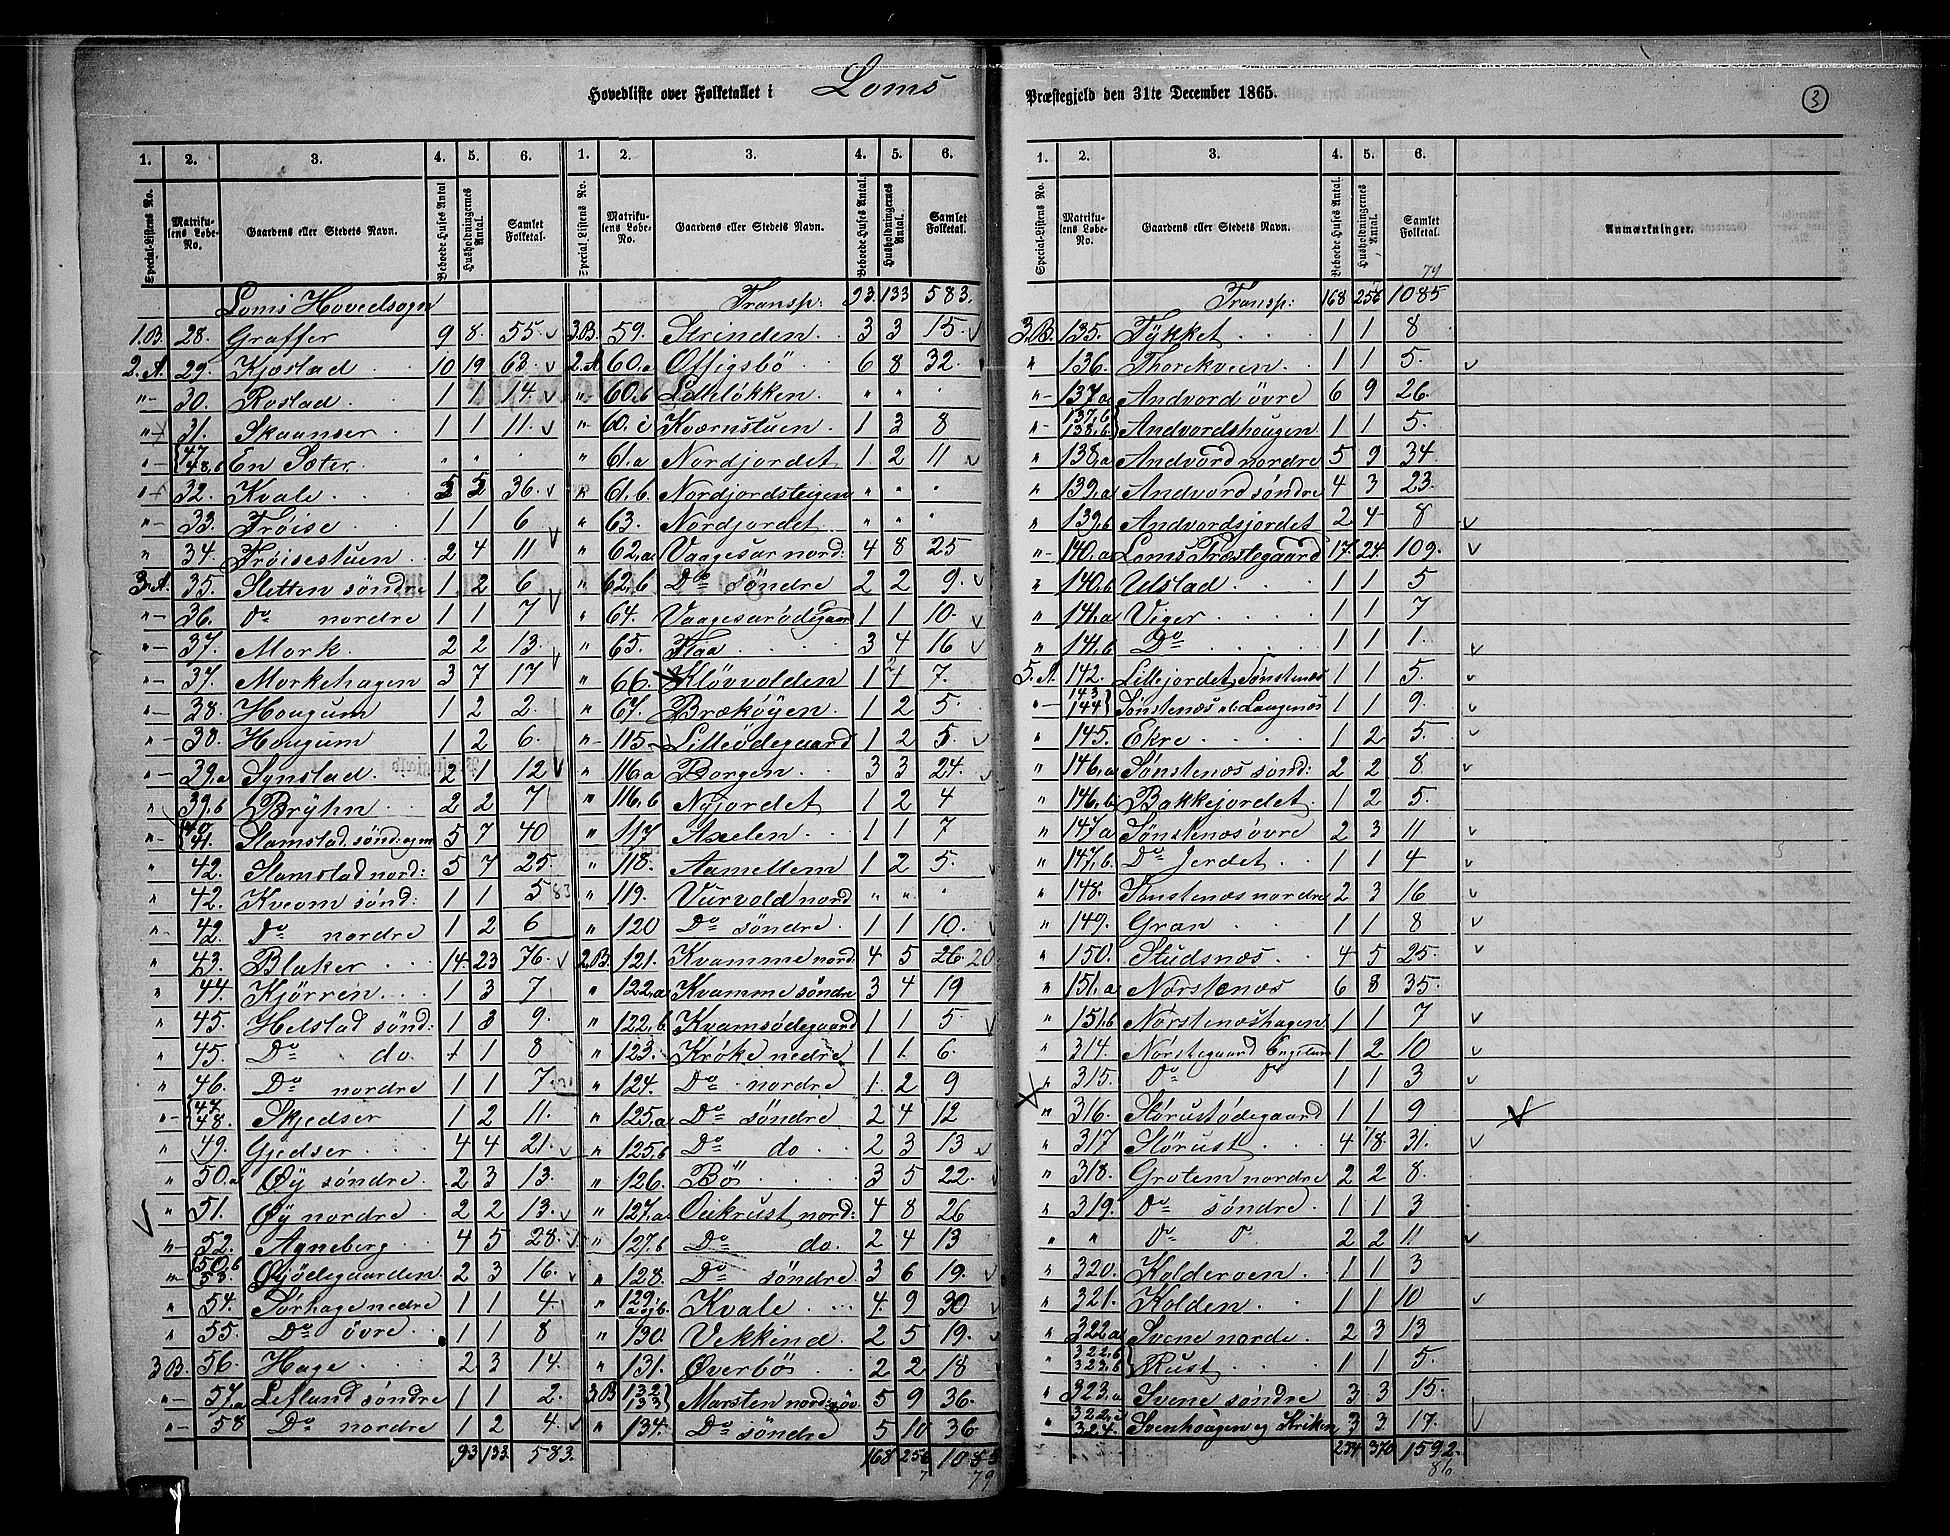 Hovedliste over Folketallet i Loms Præstegjeld den 31te December 1865.
3
1. 2. 3. 4. 5. 6. 1. 2. 3. 4. 5. 6.
Special-Listens No. Matrikulens Løbe-No. Gaardens eller Stedets Navn. Beboede Huses Antal Husholdningernes Antal. Samlet Folketal. Special Listens No. Matrikulens Løbe-No. Gaardens eller Stedets Navn. Beboede Huses Antal. Husholdningernes Antal. Samlet Folketal.
Loms Hovedsogn
1.B. 28. Graffer 9 8. 55.
2.A. 29. Kjæstad 10 19 63.
"- 30. Rostad. 1 1 14.
"- 31. Skaanser 1 1 11.
"- 47 48,b En Sæter. " " .
"- 32. Kvale 5 5 36.
"- 33. Frøise 1 1 6
" 34. Frøisestuen 2 4 11
3.A. 35. Sletten søndre 1 2 6
"- 36. do nordre 1 1 7
"- 37. Mork 2 2 13.
"- 37. Morkehagen 3 7 17
"- 38. Hougum 1 2 2.
"- 38. Hougum 1 2 6.
"- 39,a Synstad. 2 1 12
" 39,b Bryhn 2 2 7
"- 40. 41. Slamstad sønd: 5 7 40
" 42. Slamstad nord: 5 7 25.
" 42. Kveom sønd: 1 1 5
"- 42. Do nordre 1 2 6
" 43. Blaker 14. 23 76.
" 44. Kjørren 1 3 7
" 45. Helstad sønd: 1 3 9.
" 45. Do do. 1 1 8
" 46. Do nordre 1 1 7
"- 47. 48. Skjedser 1 2 11.
" 49. Gjedser 4 4 21.
" 50.a Øy søndre 2 3 13.
" 51. Øy nordre 2 2 13.
"- 52. Agneberg 4 5 28.
"- 50,b 53. Øjødegaarden 2 3 16.
" 54. Sørhage nedre 1 1 4.
" 55. Do øvre 1 1 8
3 B. 56. Hage 2 3 14.
"- 57,a Lefland søndre 1 1 2.
"- 58 Do nordre 1 2 4.
93 133 583.
Transp: 93. 133 583.
3.B. 59. Strinden 3 3 15.
2.A 60.a Offigsbö 6 8 32.
". 60.b Ladeløkken " " .
". 60.c Kværnstuen 1 3 8
" 61.a Nordjordet 1. 2 11
" 61,b. Nordjordsteigen " " "
" 63. Nordjordet " " "
" 62,a. Vaagesar nord: 4 8 25
" 62,b Do søndre 2 2 9.
" 64. Vaagesarødegaard 1 1 10.
" 65. Flaa 3 4 16
" 66. Kløvvolden 1 2 7.
" 67. Brækøyen 1 2 5.
"- 115. Lilleødegaard 1 2 5
" 116a Borgen 3 3 24.
" 116,b Nyjordet 1 2 4
" 117 Axelen 1 1 7
" 118. Aamellem 1 2 5.
" 119. Vurvold nord " " "
" 120 Do søndre 1 1 10.
2.B. 121. Kvamme nord: 4 5 26
" 122,a Kvamme søndre 3 4 19
" 122,b. Kvamsødegaard 1 1 5
" 123. Krøke nedre 1 1. 6.
" 124. Do nordre 1. 2 9
" 125,a Do søndre 2 4 12
" 125,b Do do 2 3 13
" 126. Bö 3 5 22.
" 127,a Oukrust nord: 4 8 26
" 127,b Do do. 2 4 13
" 128. Do søndre 3 6 19.
" 129. Kvale 4. 9 30
" 130. Vekkind 2 5 19.
" 131. Øverbö 2 2 18
3B 132 133 Marsten nord: 5 9 36.
" 134. Do søndre 5 10 36
168 256 1085
79
1. 2. 3. 4. 5. 6.
Special-Listens No. Matrikulens Løbe-No. Gaardens eller Stedets Navn. Beboede Huses Antal. Husholdningernes Antal. Samlet Folketal. Anmærkninger.
79
Transp: 168 256 1085
3.B. 135. Tykket 1 1 8
" 136. Thorekveen 1 1 5.
"- 137a Andvord øvre 6 9 26.
"- 137,b 138,b Andvordshougen 1 1 5.
" 138,a Andvord nordre 5 9 34.
" 139,a Andvord søndre 4 3 23.
" 139,b Andvordsjordet 2 4 8
"- 140,a Loms Præstegaard 17. 24 109.
" 140,b Udstad 1 1 5
" 141,a Viger 1 1 7
" 141,b Do 1 1 1.
5.A. 142. Lillejordet, Sønstenæs 1 1 5.
"- 143 144 Sønstenæs el: Langenæs 1 1 9.
" 145. Ekre 1 2 5.
" 146,a Sønstenæs sønd: 2 2 8
" 146,b. Bakkejordet 1 2 5.
" 147a Sønstenæs øvre 2 3 11
" 147,b. Do Jerdet 1 1 4
" 148. Sønstenæs nordre 2 3 16
" 149. Gran 1 1 8
" 150. Studsnæs 4 5 25.
" 151,a Nørstenæs 6 8 35.
" 151,b Nørstenæshagen 1 1 7
" 314. Nørstegaard 1 2 10
" 315. do do 1 1 3
" 316. Størustødegaard 1 1 9
" 317 Størust 4 8. 31.
" 318. Grotem nordre 2 2 8.
" 319. Do søndre 1 1 3
" " do do 2 2 11
" 320. Kolderven 1 1 3
" 321. Kolden 1 1 10
" 322a Svene nordre. 2 3 13
" 322,b 323,b Rust 1 1 5.
" 323,a Svene søndre 3 3 15.
" 322,c 324. Svenhougen og Kriken 3 3 17.
234 370 1592.
86